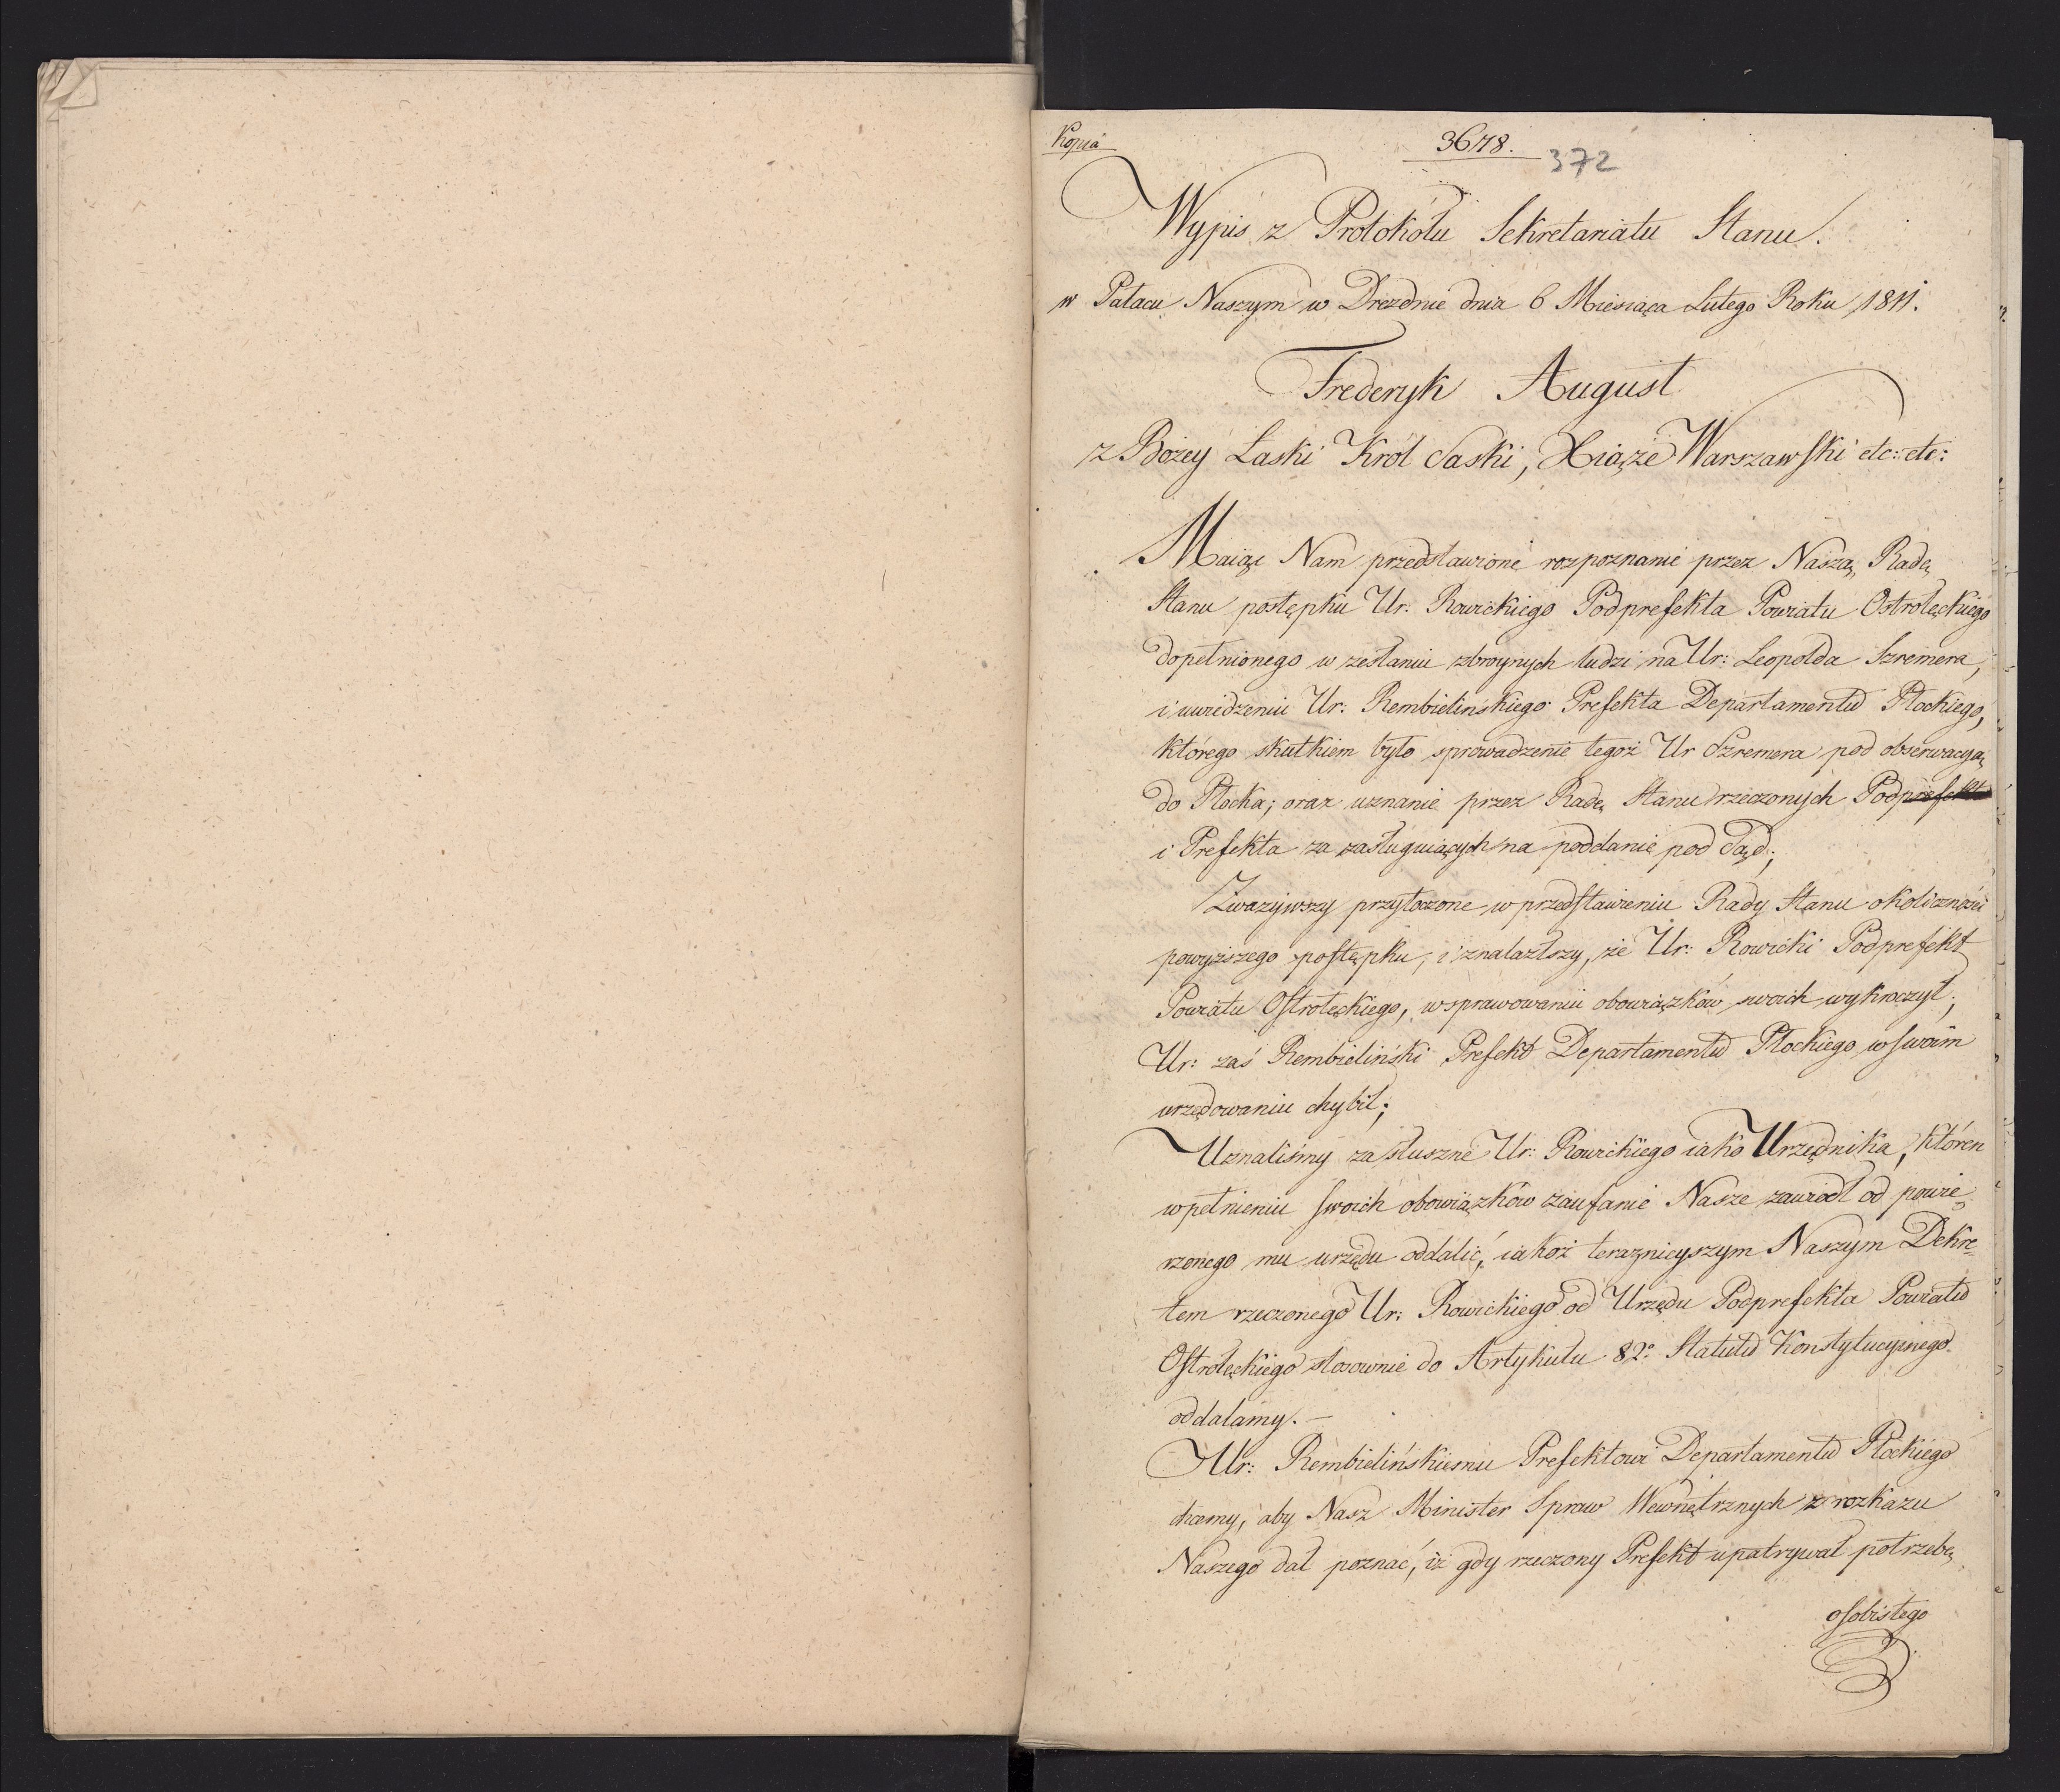 Kopia
3678.
372
Wypis z Protokółu Sekretariatu Stanu.
w Pałacu Naszym w Dreźnie dnia 6 Miesiąca Lutego Roku 1811.
Frederyk August
z Bożey Łaski Król Saski, Xiąże Warszawski etc: etc:
Maiąc Nam przedstawione rozpoznanie przez Naszą Radę
Stanu postępku Ur: Rowickiego Podprefekta Powiatu Ostrołęckiego
dopełnionego w zesłaniu zbroynych ludzi na Ur: Leopolda Szremera,
i uwiedzeniu Ur: Rembielińskiego Prefekta Departamentu Płockiego,
którego skutkiem było sprowadzenie tegoż Ur Szremera pod obserwacyą
do Płocka; oraz uznanie przez Radę Stanu rzeczonych Podprefekta
i Prefekta za zasługuiących na poddanie pod Sąd;
Zważywszy przytoczone w przedstawieniu Rady Stanu okoliczności
powyższego postępku, i znalazłszy, że Ur: Rowicki Podprefekt
Powiatu Ostrołęckiego, w sprawowaniu obowiązków swoich wykroczył;
Ur: zaś Rembieliński Prefekt Departamentu Płockiego w swoim
urzędowaniu chybił;
Uznaliśmy za słuszne Ur: Rowickiego iako Urzędnika, któren
w pełnieniu swoich obowiązków zaufanie Nasze zawiódł od powie-
rzonego mu urzędu oddalić, iakoż teraznieyszym Naszym Dekre-
tem rzeczonego Ur: Rowickiego od Urzędu Podprefekta Powiatu
Ostrołęckiego stosownie do Artykułu 82o Statutu Konstytucyinego
oddalamy. —
Ur: Rembielińskiemu Prefektowi Departamentu Płockiego
chcemy, aby Nasz Minister Spraw Wewnętrznych z rozkazu
Naszego dał poznać, iż gdy rzeczony Prefekt upatrywał potrzebę
osobistego